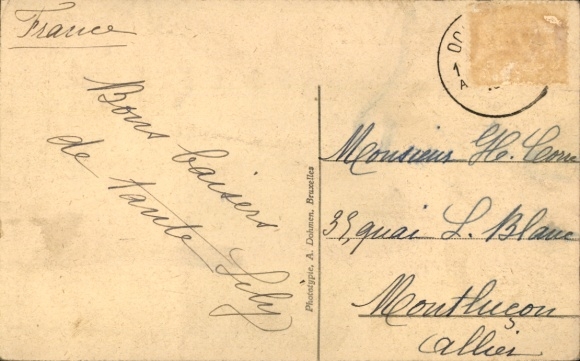 France
Bons baisers
de tante Lily
Phototypie, A. Dohmen, Bruxelles
Monsieur H.
quai L. Blanc
Montluçon
Allier